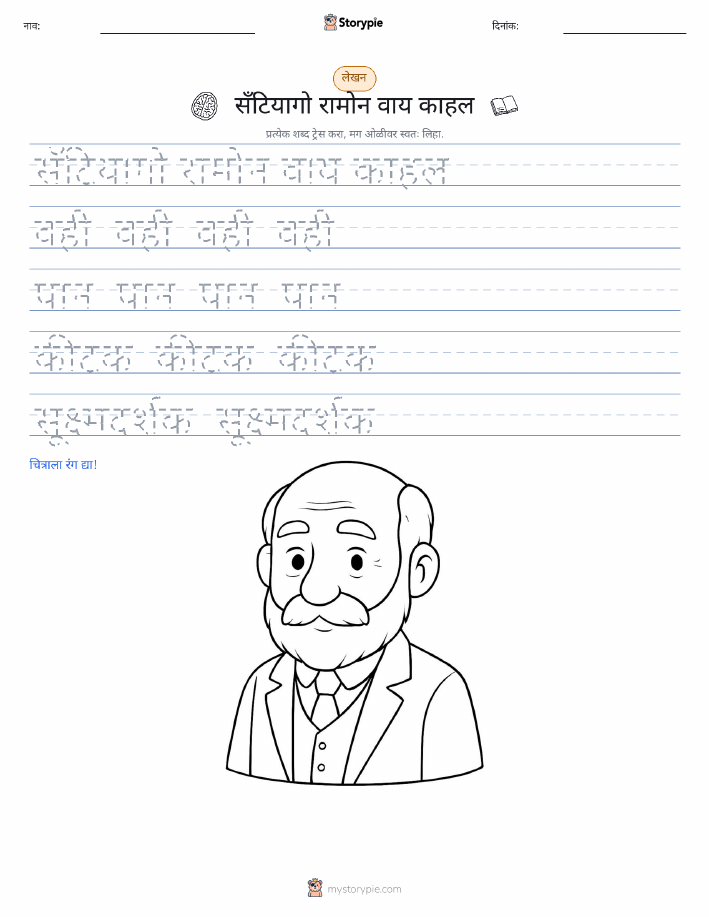 नाव:
Storypie
दिनांक:
लेखन
सँटियागो रामोन वाय काहल
प्रत्येक शब्द ट्रेस करा, मग ओळीवर स्वतः लिहा.
सँटियागो रामोन वाय काहल
वही वही वही वही
पान पान पान पान
कीटक कीटक कीटक
सूक्ष्मदर्शक सूक्ष्मदर्शक
चित्राला रंग द्या!
mystorypie.com